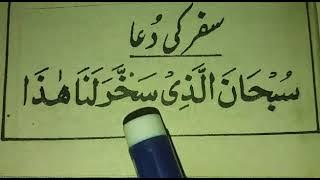 سفر کی دُعا
سُبْحَانَ الَّذِیْ سَخَّرَ لَنَا هٰذَا